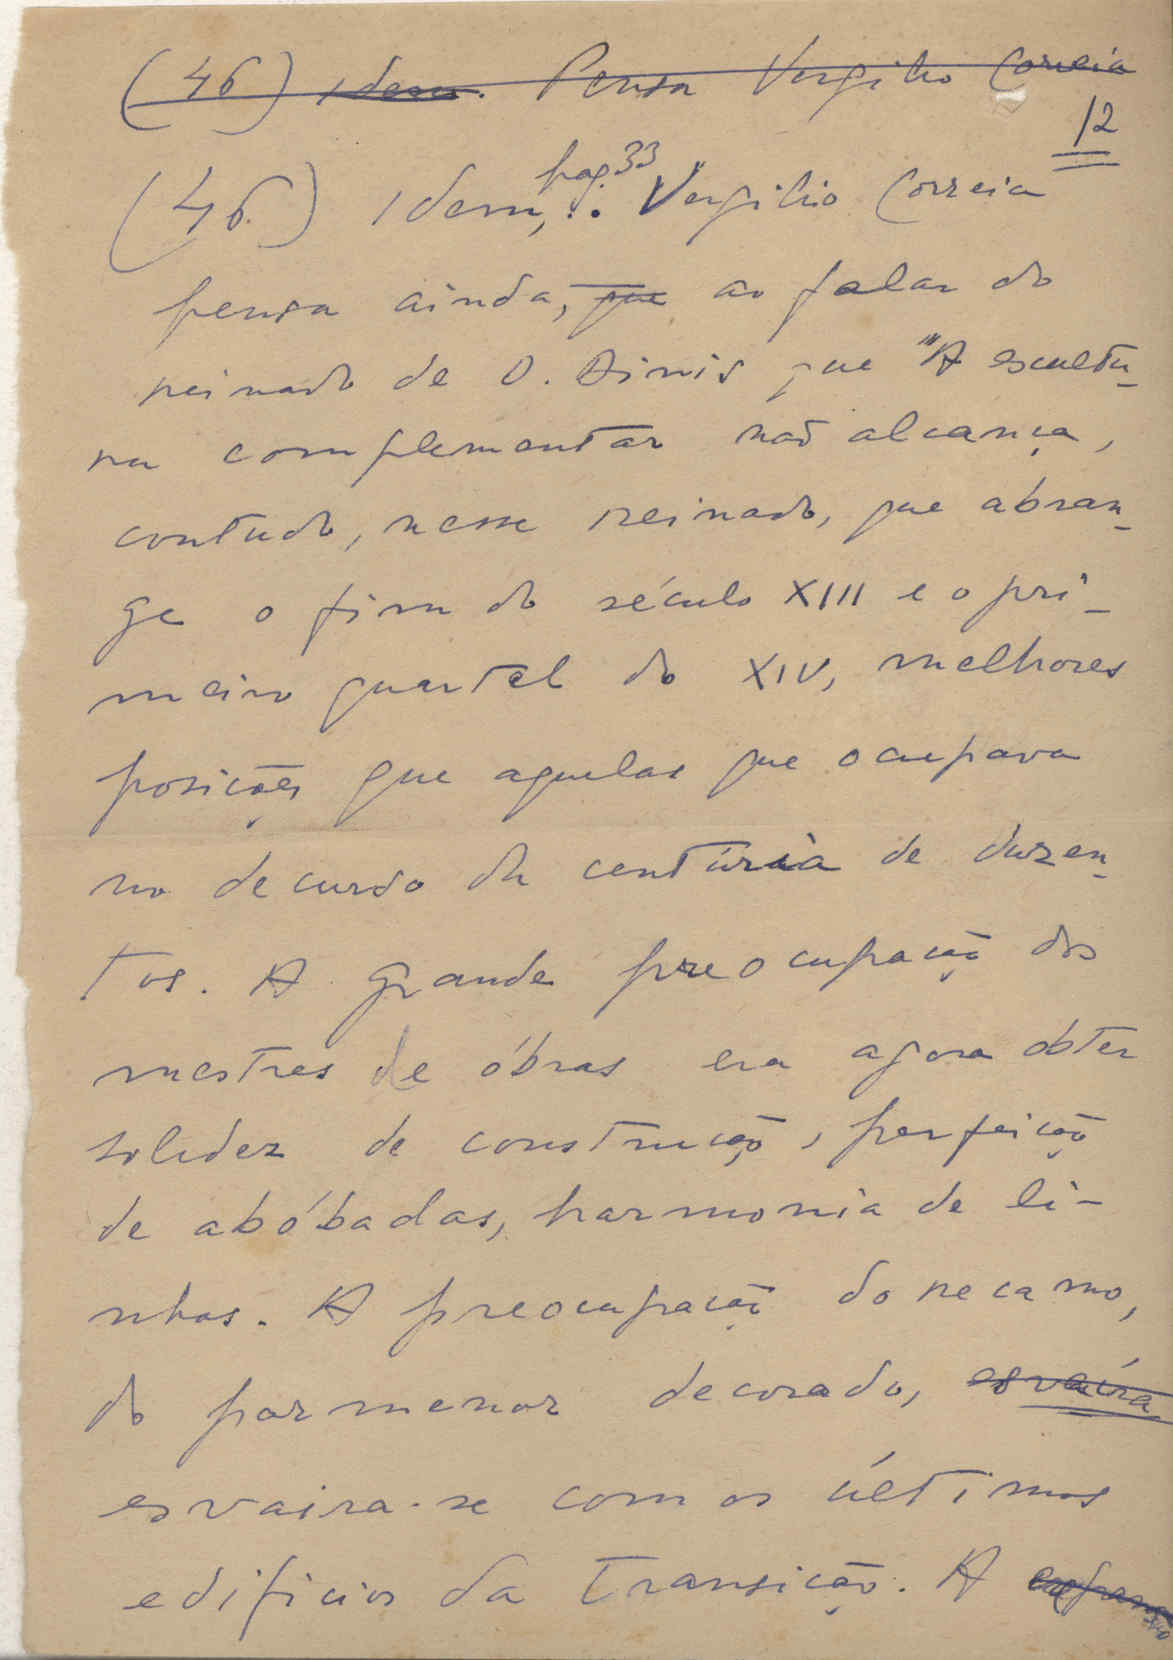 (46) Idem. Pensa Vergilio Correia
12
(46.) Idem, pag. 33. Vergilio Correia
pensa ainda, que ao falar do
reinado de D. Dinis que "A escultu-
ra complementar não alcança,
contudo, nesse reinado, que abran-
ge o fim do século XIII e o pri-
meiro quartel do XIV, melhores
posições que aquelas que ocupava
no decurso da centúria de duzen-
tos. A grande preocupação dos
mestres de óbras era agora obter
solidez de construção, perfeição
de abóbadas, harmonia de li-
nhas. A preocupação do recamo,
do pormenor decorado, esvaíra
esvaira-se com os últimos
edificios da Transição. A